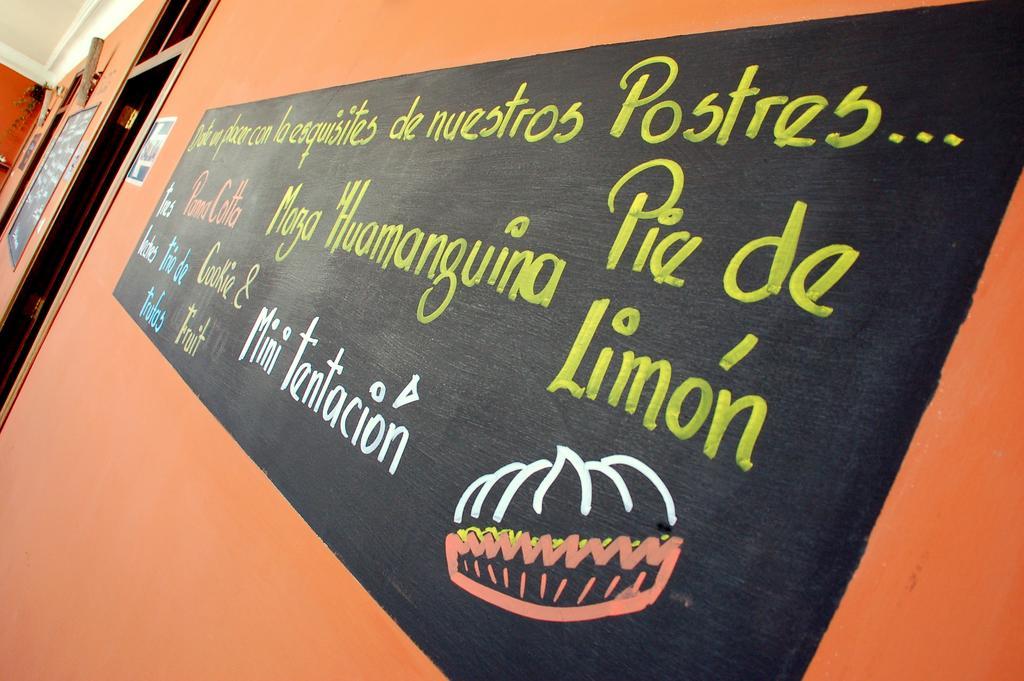 Date un placer con la esquisites de nuestros Postres...
Tres Leches
Panna Cotta
Trio de Trufas
Cookie & Fruit
Moza Huamanguina
Mini Tentación
Pie de
Limón